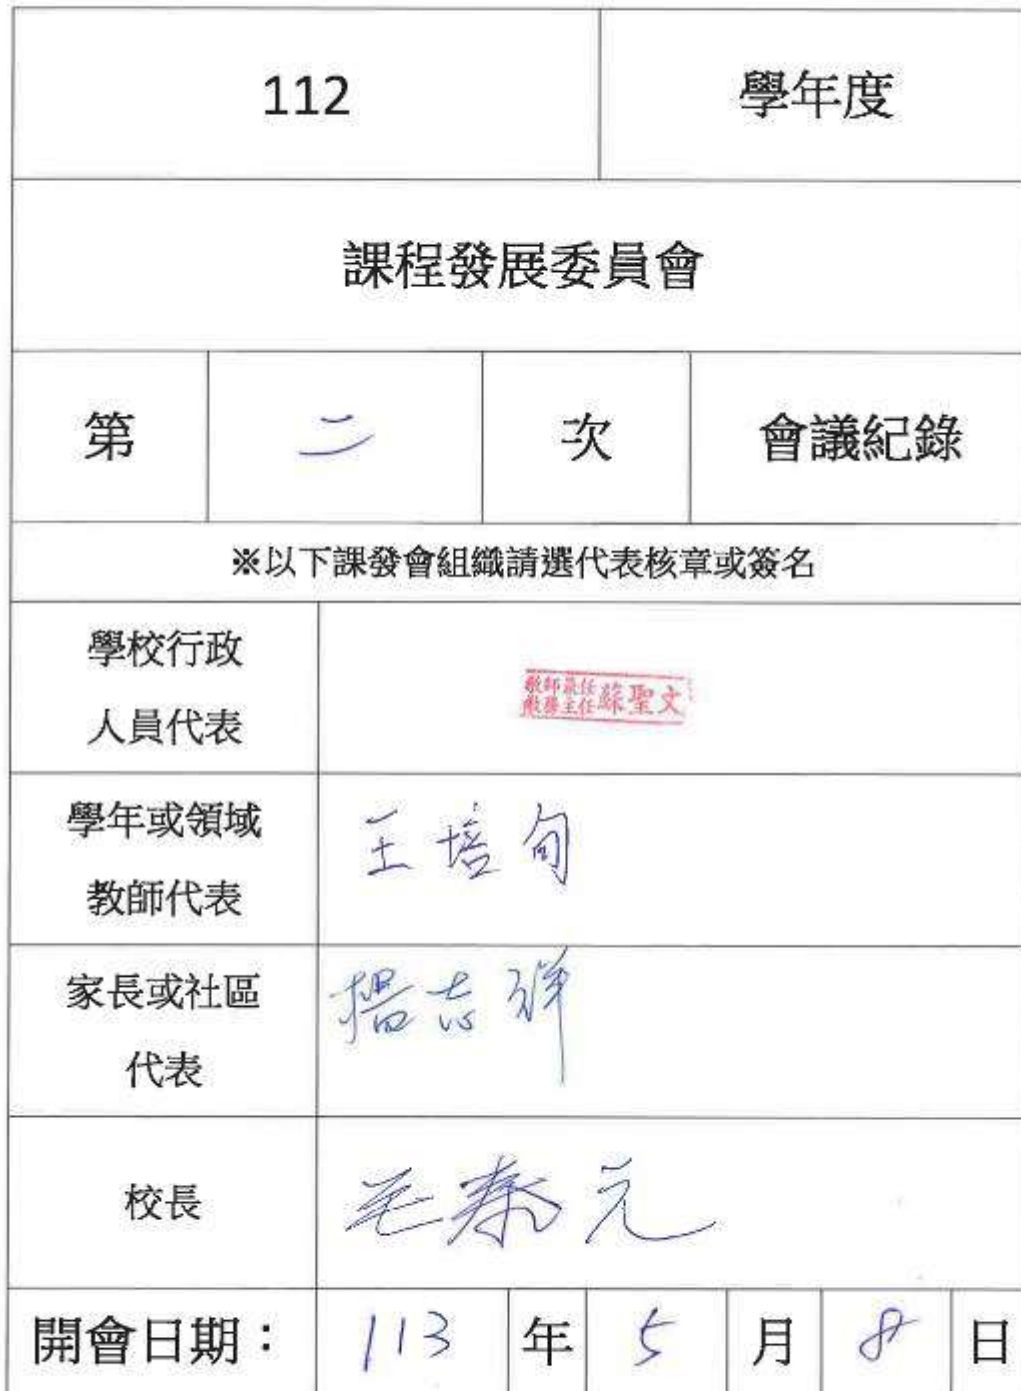 112 學年度
課程發展委員會
第 二 次 會議紀錄
※以下課發會組織請選代表核章或簽名
學校行政
人員代表
教師兼任
教務主任
蘇聖文
學年或領域
教師代表
王培甸
家長或社區
代表
楊志祥
校長
元
開會日期: 113 年 5 月 8 日